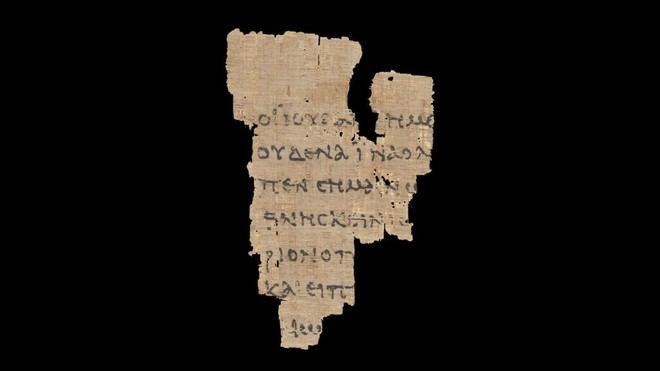 ΟΙ ΙΟΥΔΑΙ ΗΜΕ
ΟΥΔΕΝΑ ΙΝΑ Ο Λ
ΠΕΝ ΣΗΜΑΙΝΩ
ΘΝΗΣΚΕΙΝ Ι
ΡΙΟΝ Ο Π
ΚΑΙ ΕΙΠ
ΙΩ